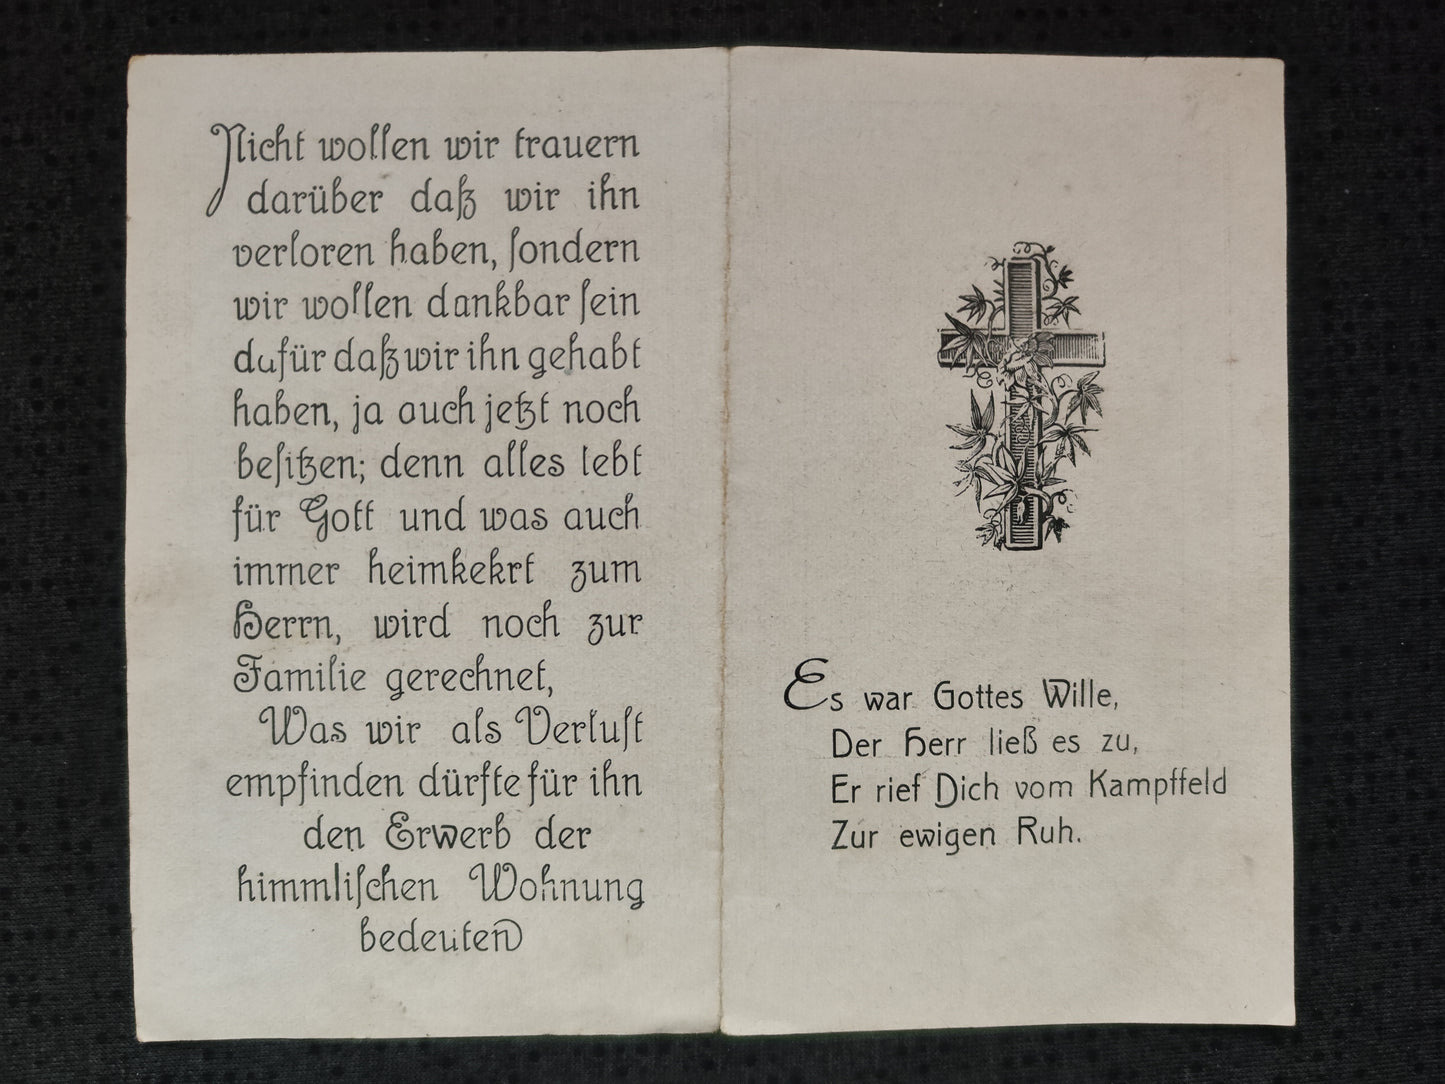 Nicht wollen wir trauern
darüber daß wir ihn
verloren haben, sondern
wir wollen dankbar sein
dafür daß wir ihn gehabt
haben, ja auch jetzt noch
besitzen; denn alles lebt
für Gott und was auch
immer heimkekrt zum
Herrn, wird noch zur
Familie gerechnet,
Was wir als Verlust
empfinden dürfte für ihn
den Erwerb der
himmlischen Wohnung
bedeuten
Es war Gottes Wille,
Der Herr ließ es zu,
Er rief Dich vom Kampffeld
Zur ewigen Ruh.